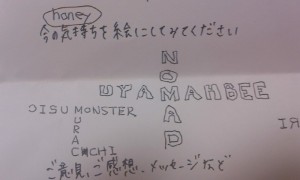 honey
今の気持ちを絵にしてみてください
NOMAD
UYAMAHBEE
MONSTER
MURAC
CHI
ご意見、ご感想、メッセージなど